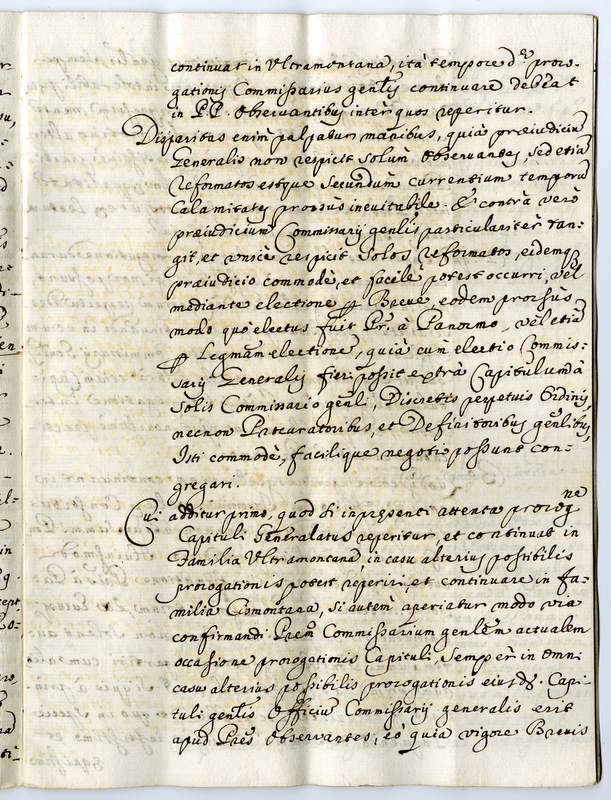 continuat in Ultramontana, ità tempore d.ę proro-
gationis Commissarius gen̄lis continuare debeat
in P.P. Observantibus inter quos reperitur.
Disparitas enim palpatur manibus, quia præiudiciũ
Generalis non respicit solum Observantes, sed etiã
Reformatos estque secundum currentium temporũ
Calamitates prorsus inevitabile. & contrà verò
præiudicium Commissarij gen̄lis particularitèr tan-
git, et unicè respicit solos reformatos, eidemq;
præiudicio commodè, et facilè potest occurri, vel
mediante electione p Breve, eodem prorsùs
modo quo electus fuit Pr. à Panormo, vel etiã
p Legmam electionē, quià cùm electio Commis-
sarij Generalis fieri possit extrà Capitulum à
Solis Commissario genli, Discretis perpetuis Ordinis,
necnon Procuratoribus, et Definitoribus gen̄libus,
Isti commodè, facilique negotio possunt con-
gregari.
Cui additur primo, quod si in præsenti attenta prorog.ne
Capituli Generalatus reperitur, et continuat in
Familia Ultramontana, in casu alterius possibilis
prorogationis potest reperiri, et continuare in fa-
milia Cismontana, si autem aperiatur modo via
confirmandi Prem̄ Commissarium genlem̄ actualem
occasione prorogationis Capituli, semper in omni
casu alterius possibilis prorogationis eiusd. Capi-
tuli gen̄lis Officiũ Commissarij generalis erit
apud Pres̄ Observantes, eò quia vigore Brevis